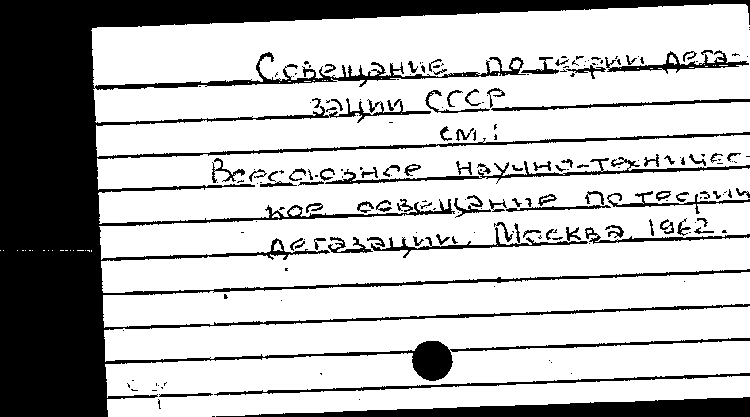 Совещание по теории дега-
зации СССР
см.:
Всесоюзное научно-техничес-
кое совещание по теории
дегазации. Москва. 1962.